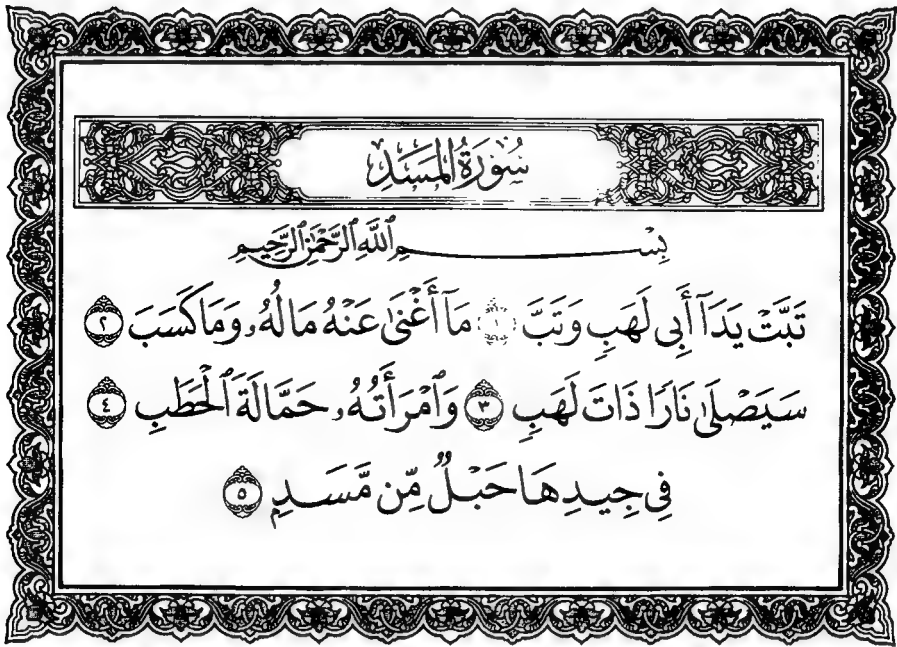 سُورَةُ المَسَدِ
بِسۡمِ ٱللَّهِ ٱلرَّحۡمَٰنِ ٱلرَّحِيمِ
تَبَّتۡ يَدَآ أَبِي لَهَبٖ وَتَبَّ ١ مَآ أَغۡنَىٰ عَنۡهُ مَالُهُۥ وَمَا كَسَبَ ٢
سَيَصۡلَىٰ نَارٗا ذَاتَ لَهَبٖ ٣ وَٱمۡرَأَتُهُۥ حَمَّالَةَ ٱلۡحَطَبِ ٤
فِي جِيدِهَا حَبۡلٞ مِّن مَّسَدِۭ ٥